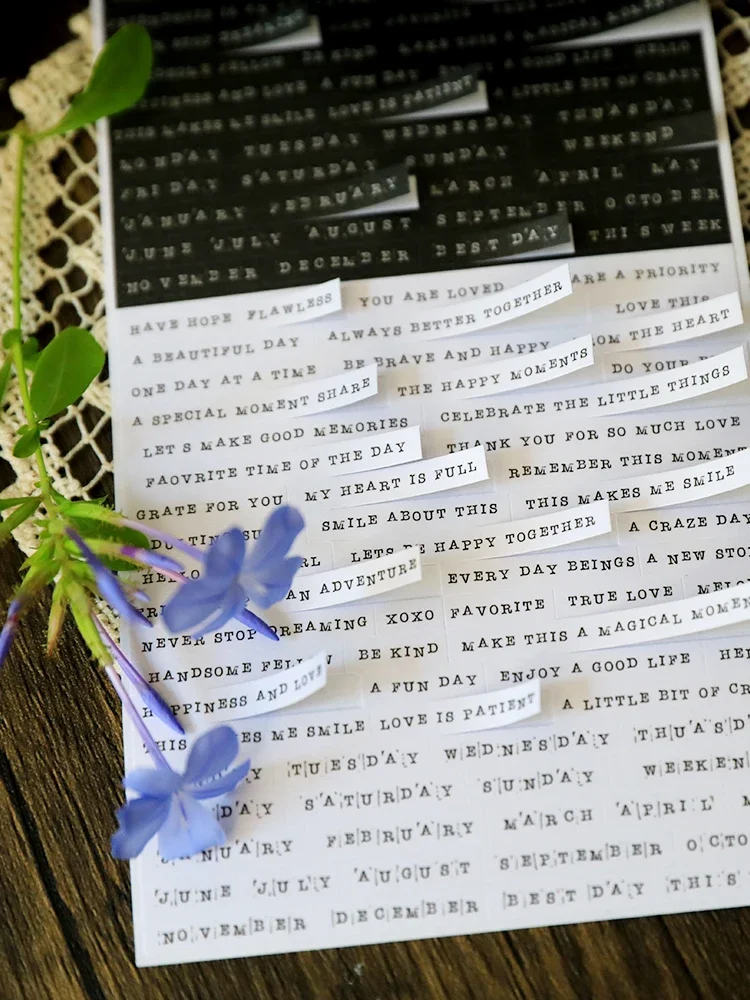 HAPPINESS AND LOVE A FUN DAY A GOOD LIFE HELLO
THIS MAKES ME SMILE LOVE IS PATIENT A LITTLE BIT OF CRAZY
MONDAY TUESDAY WEDNESDAY THUASDAY
FRIDAY SATURDAY SUNDAY WEEKEND
JANUARY FEBRUARY MARCH APRIL MAY
JUNE JULY AUGUST SEPTEMBER OCTOBER
NOVEMBER DECEMBER BEST DAY THIS WEEK
HAVE HOPE FLAWLESS YOU ARE LOVED ARE A PRIORITY
A BEAUTIFUL DAY ALWAYS BETTER TOGETHER LOVE THIS
ONE DAY AT A TIME BE BRAVE AND HAPPY THE HEART
A SPECIAL MOMENT SHARE THE HAPPY MOMENTS DO YOUR
LET S MAKE GOOD MEMORIES CELEBRATE THE LITTLE THINGS
FAOVRITE TIME OF THE DAY THANK YOU FOR SO MUCH LOVE
GRATE FOR YOU MY HEART IS FULL REMEMBER THIS MOMENT
SMILE ABOUT THIS THIS MAKES ME SMILE
HELLO LETS BE HAPPY TOGETHER A CRAZE DAY
AN ADVENTURE EVERY DAY BEINGS A NEW
NEVER STOP DREAMING XOXO FAVORITE TRUE LOVE
HANDSOME BE KIND MAKE THIS A MAGICAL MOMENT
HAPPINESS AND LOVE A FUN DAY ENJOY A GOOD LIFE
THIS ME SMILE LOVE IS PATIENT A LITTLE BIT OF
TUESDAY WEDNESDAY
SATURDAY SUNDAY
JANUARY FEBRUARY MARCH APRIL
JUNE JULY AUGUST SEPTEMBER
NOVEMBER DECEMBER BEST DAY THIS